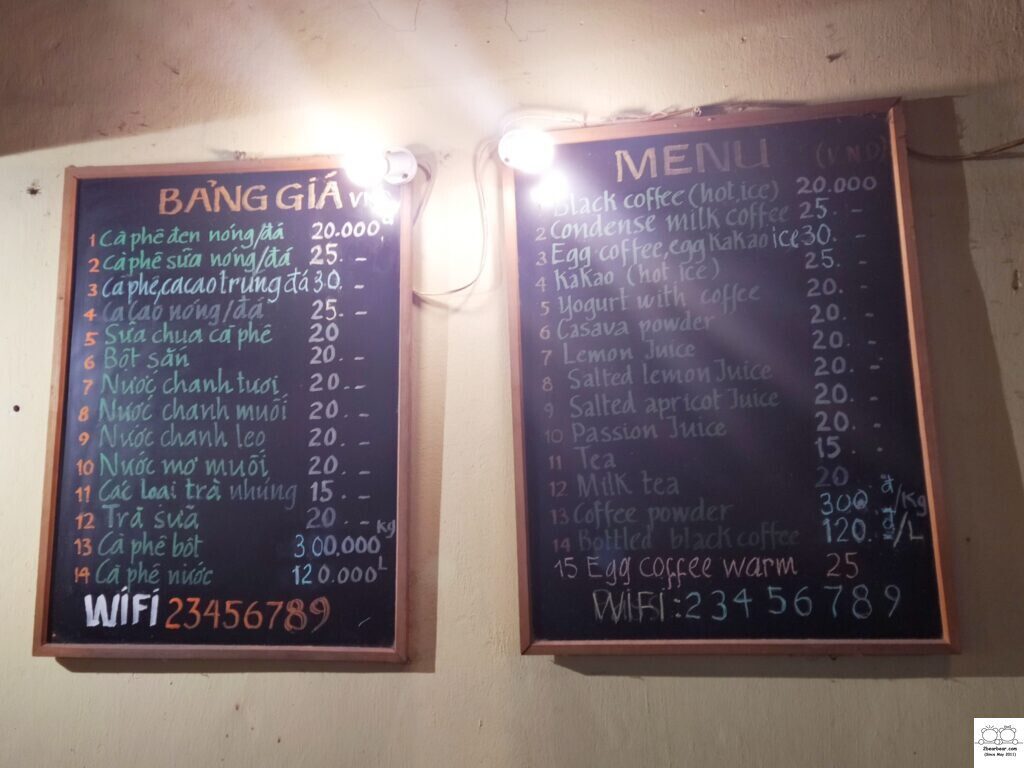 BẢNG GIÁ
1 Cà phê đen nóng/đá 20.000
2 Cà phê sữa nóng/đá 25. -
3 Cà phê, cacao trứng đá 30. -
4 Ca Cao nóng/đá 25. -
5 Sữa chua cà phê 20
6 Bột sắn 20. -
7 Nước chanh tươi 20. -
8 Nước chanh muối 20. -
9 Nước chanh leo 20. -
10 Nước mơ muối 20. -
11 Các loại trà nhúng 15. -
12 Trà sữa 20 - -
13 Cà phê bột 300,000 Kg
14 Cà phê nước 120.000 L
WiFi 23456789
MENU (VND)
Black coffee (hot, ice) 20.000
2 Condense milk coffee 25. -
3 Egg coffee, egg Kakao ice 30. -
4 Kakao (hot, ice) 25. -
5 Yogurt with coffee 20. -
6 Casava powder 20. -
7 Lemon Juice 20. -
8 Salted lemon Juice 20. -
9 Salted apricot Juice 20. -
10 Passion Juice 20. -
11 Tea 15. -
12 Milk tea 20
13 Coffee powder 300. đ/Kg
14 Bottled black coffee 120. đ/L
15 Egg coffee warm 25
WiFi : 23456789
2bearbear.com
(Since May 2011)